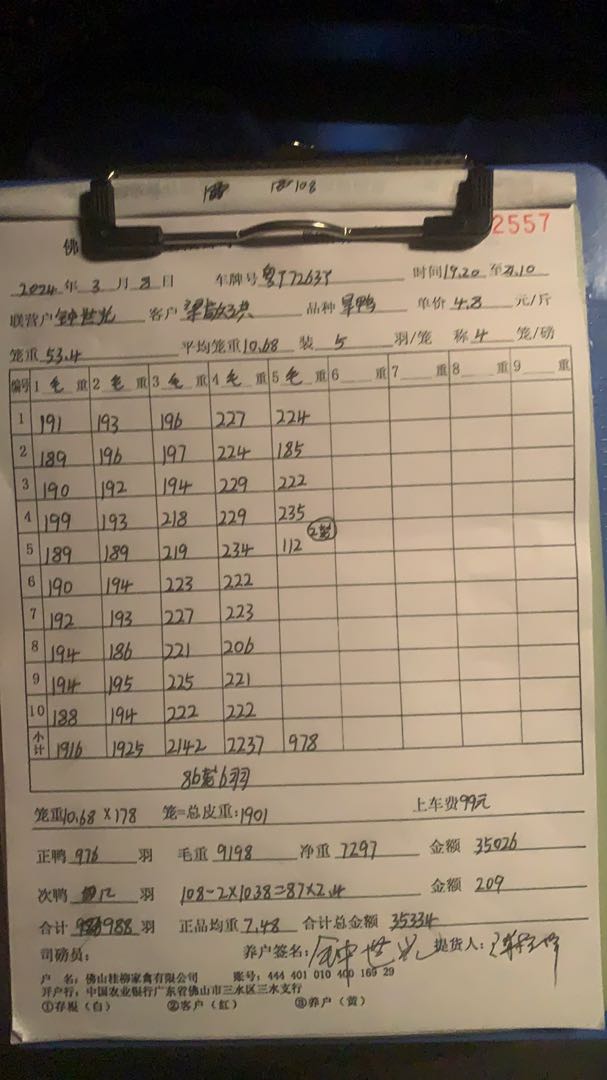 108
2557
佛
2024年 3 月 8 日 车牌号 粤 时间19.20 至21.10
联营户 钟世光 客户 品种 旱鸭 单价 4.8 元/斤
笼重 53.4 平均笼重 10.68 装 5 羽/笼 称 4 笼/磅
编号 1 毛 重 2 毛 重 3 毛 重 4 毛 重 5 毛 重 6 重 7 重 8 重 9 重
1 191 193 196 227 224
2 189 196 197 224 185
3 190 192 194 229 222
4 199 193 218 229 235
5 189 189 219 234 112 2笼
6 190 194 223 222
7 192 193 227 223
8 194 186 221 206
9 194 195 225 221
10 188 194 222 222
小计 1916 1925 2142 2237 978
笼重10.68 ×178 笼=总皮重:1901 上车费99元
正鸭 976 羽 毛重 9198 净重 7297 金额 35026
次鸭 12 羽 108-2×10.38=87×2.4 金额 209
合计 988 羽 正品均重 7.48 合计总金额 35334
司磅员: 养户签名: 钟世光 提货人:
户 名: 佛山桂柳家禽有限公司 账号: 444 401 010 400 169 29
开户行: 中国农业银行广东省佛山市三水区三水支行
①存根(白) ②客户(红) ③养户(黄)